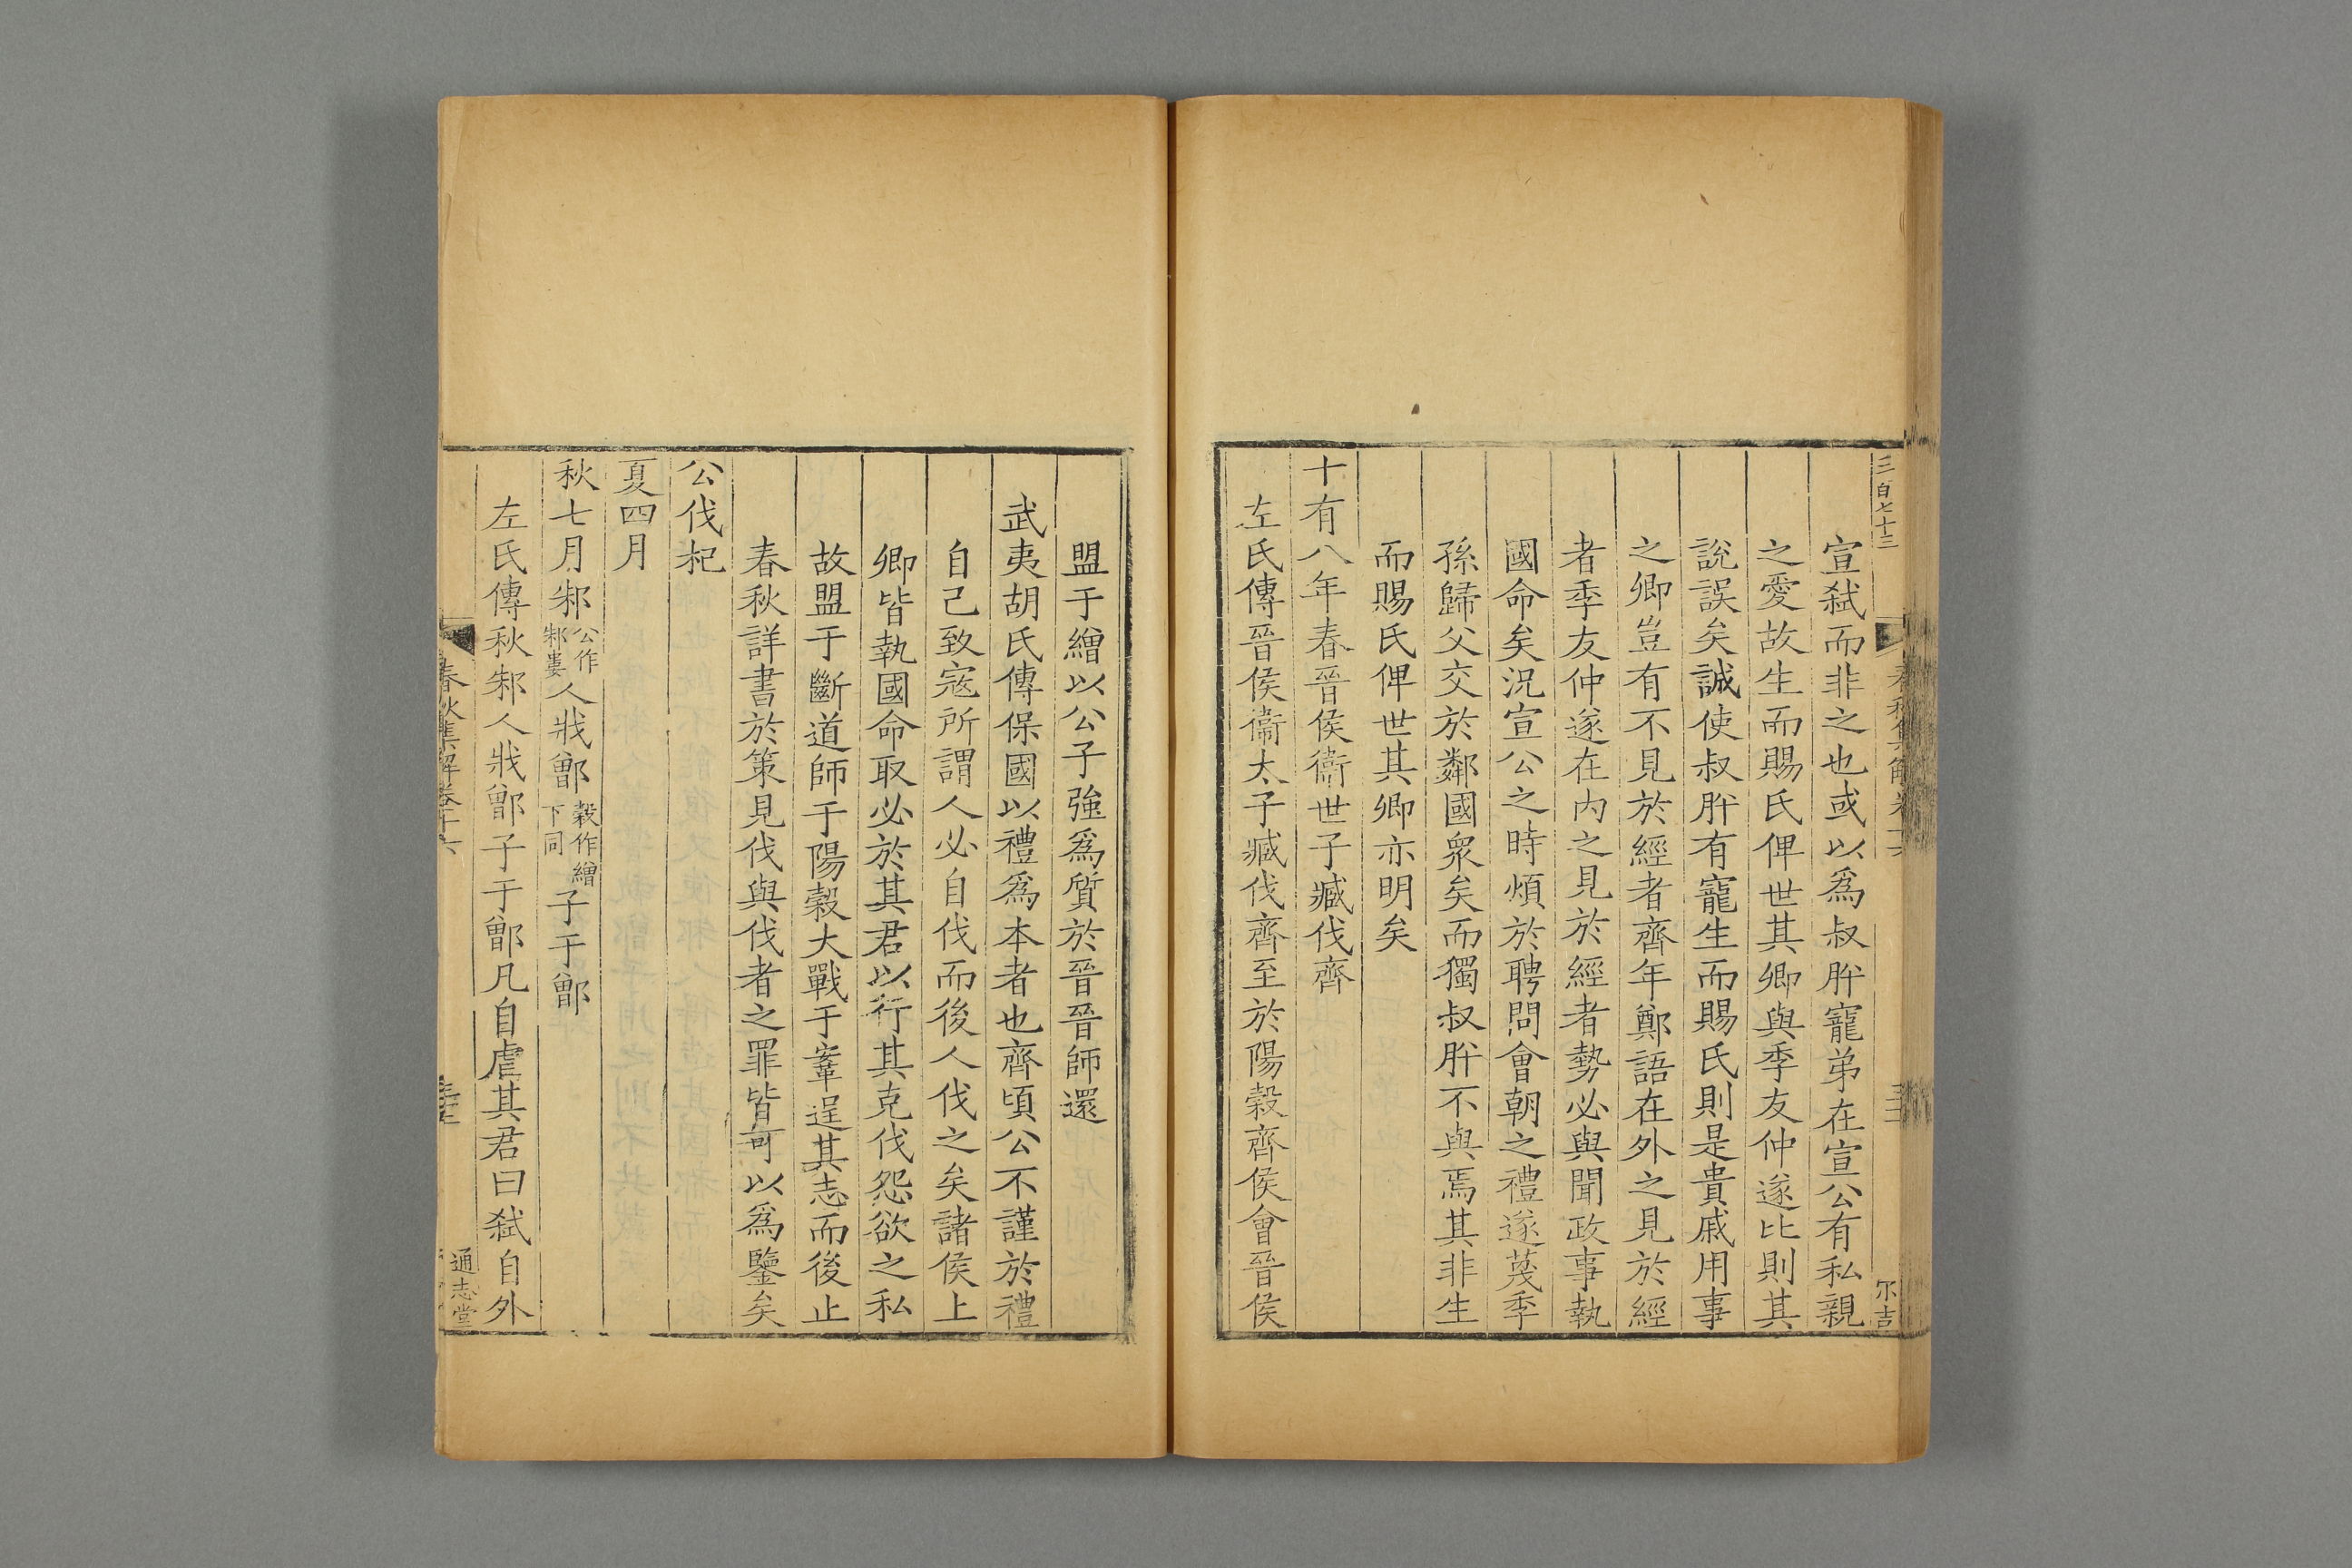 三百七十三
春秋集解卷十六
尓吉
宣弑而非之也或以爲叔肸寵弟在宣公有私親
之愛故生而賜氏俾世其卿與季友仲遂比則其
說誤矣誠使叔肸有寵生而賜氏則是貴戚用事
之卿豈有不見於經者齊年鄭語在外之見於經
者季友仲遂在內之見於經者勢必與聞政事執
國命矣況宣公之時煩於聘問會朝之禮遂蔑季
孫歸父交於鄰國衆矣而獨叔肸不與焉其非生
而賜氏俾世其卿亦明矣
十有八年春晉侯衞世子臧伐齊
左氏傳晉侯衞太子臧伐齊至於陽穀齊侯會晉侯
盟于繒以公子強爲質於晉晉師還
武夷胡氏傳保國以禮爲本者也齊頃公不謹於禮
自己致宼所謂人必自伐而後人伐之矣諸侯上
卿皆執國命取必於其君以行其克伐怨欲之私
故盟于斷道師于陽穀大戰于鞌逞其志而後止
春秋詳書於策見伐與伐者之罪皆可以爲鑒矣
公伐杞
夏四月
秋七月邾公作邾婁人戕鄫穀作繒下同子于鄫
左氏傳秋邾人戕鄫子于鄫凡自虐其君曰弑自外
春秋集解卷十六
通志堂